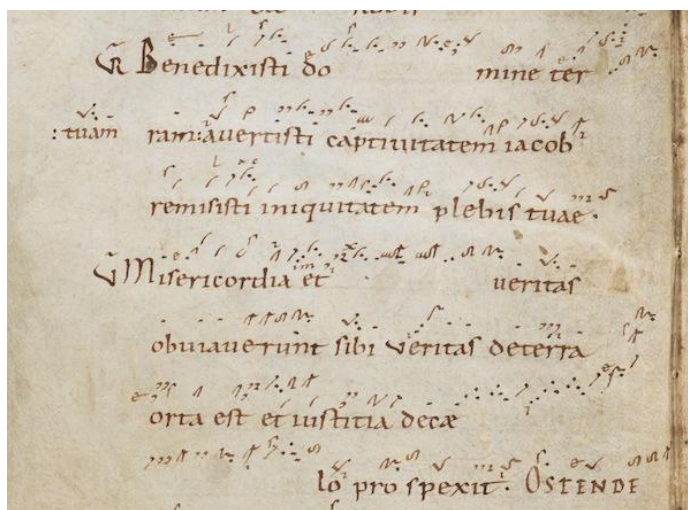 Benedixisti do mine ter
: tuam ram: avertisti captivitatem iacob
remisisti iniquitatem plebis tuae.
Misericordia et veritas
obviaverunt sibi veritas deterra
orta est et iustitia decae
lo prospexit. OSTENDE